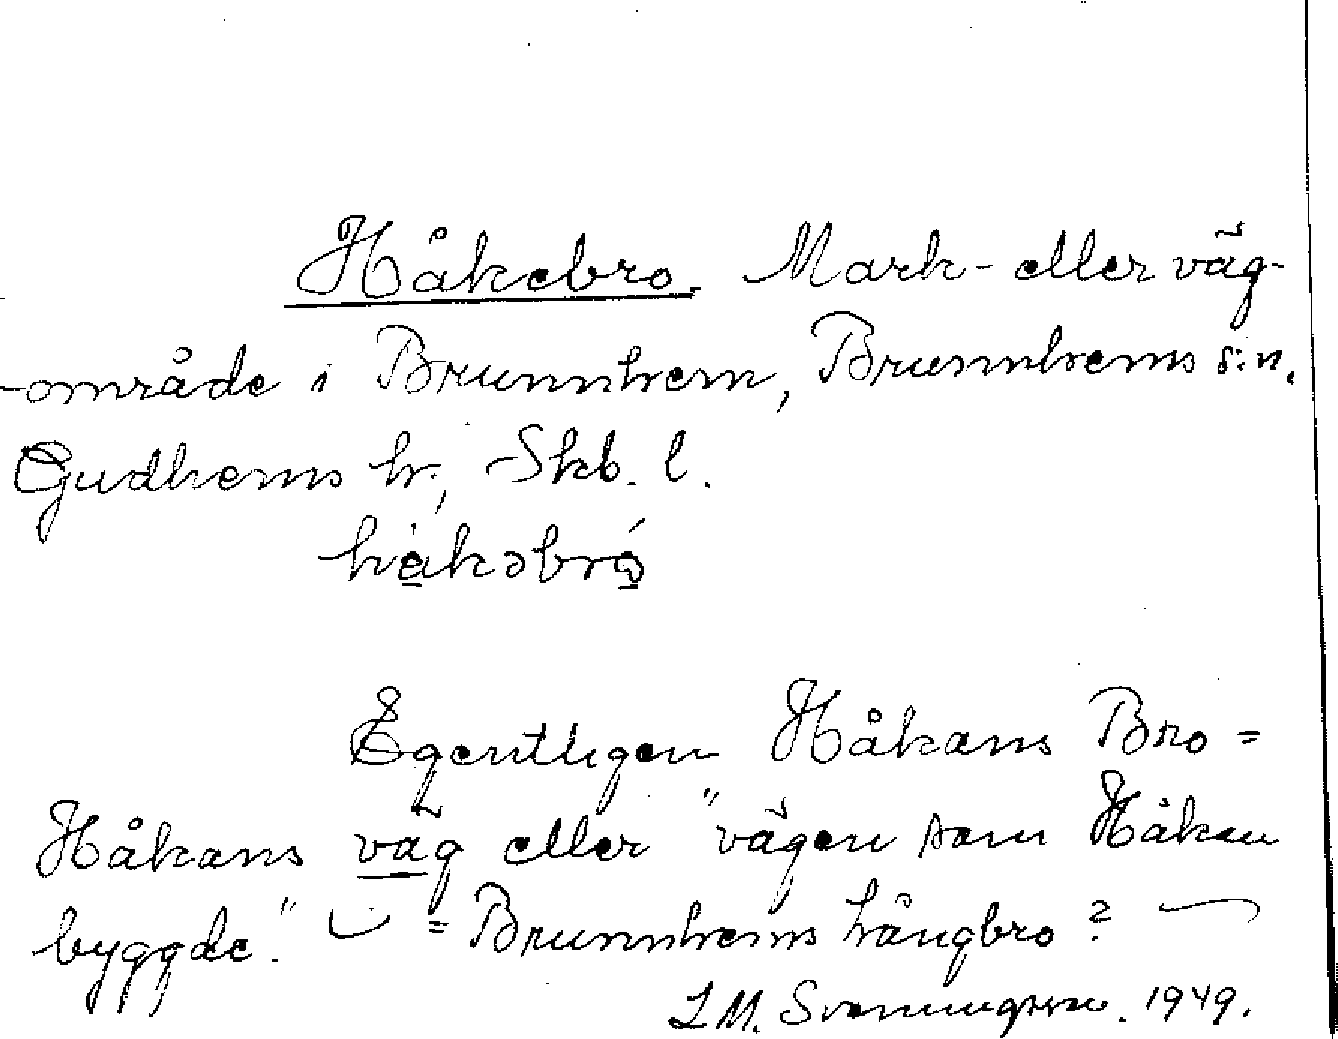 Håkebro. Mark- eller väg-
område i Brunnhem, Brunnhems s:n.
Gudhems hr, Skb. l.
håkəbrö
Egentligen Håkans Bro =
Håkans väg eller "vägen som Håkan
byggde." = Brunnhems långbro?
L M. Svenningsson. 1949.